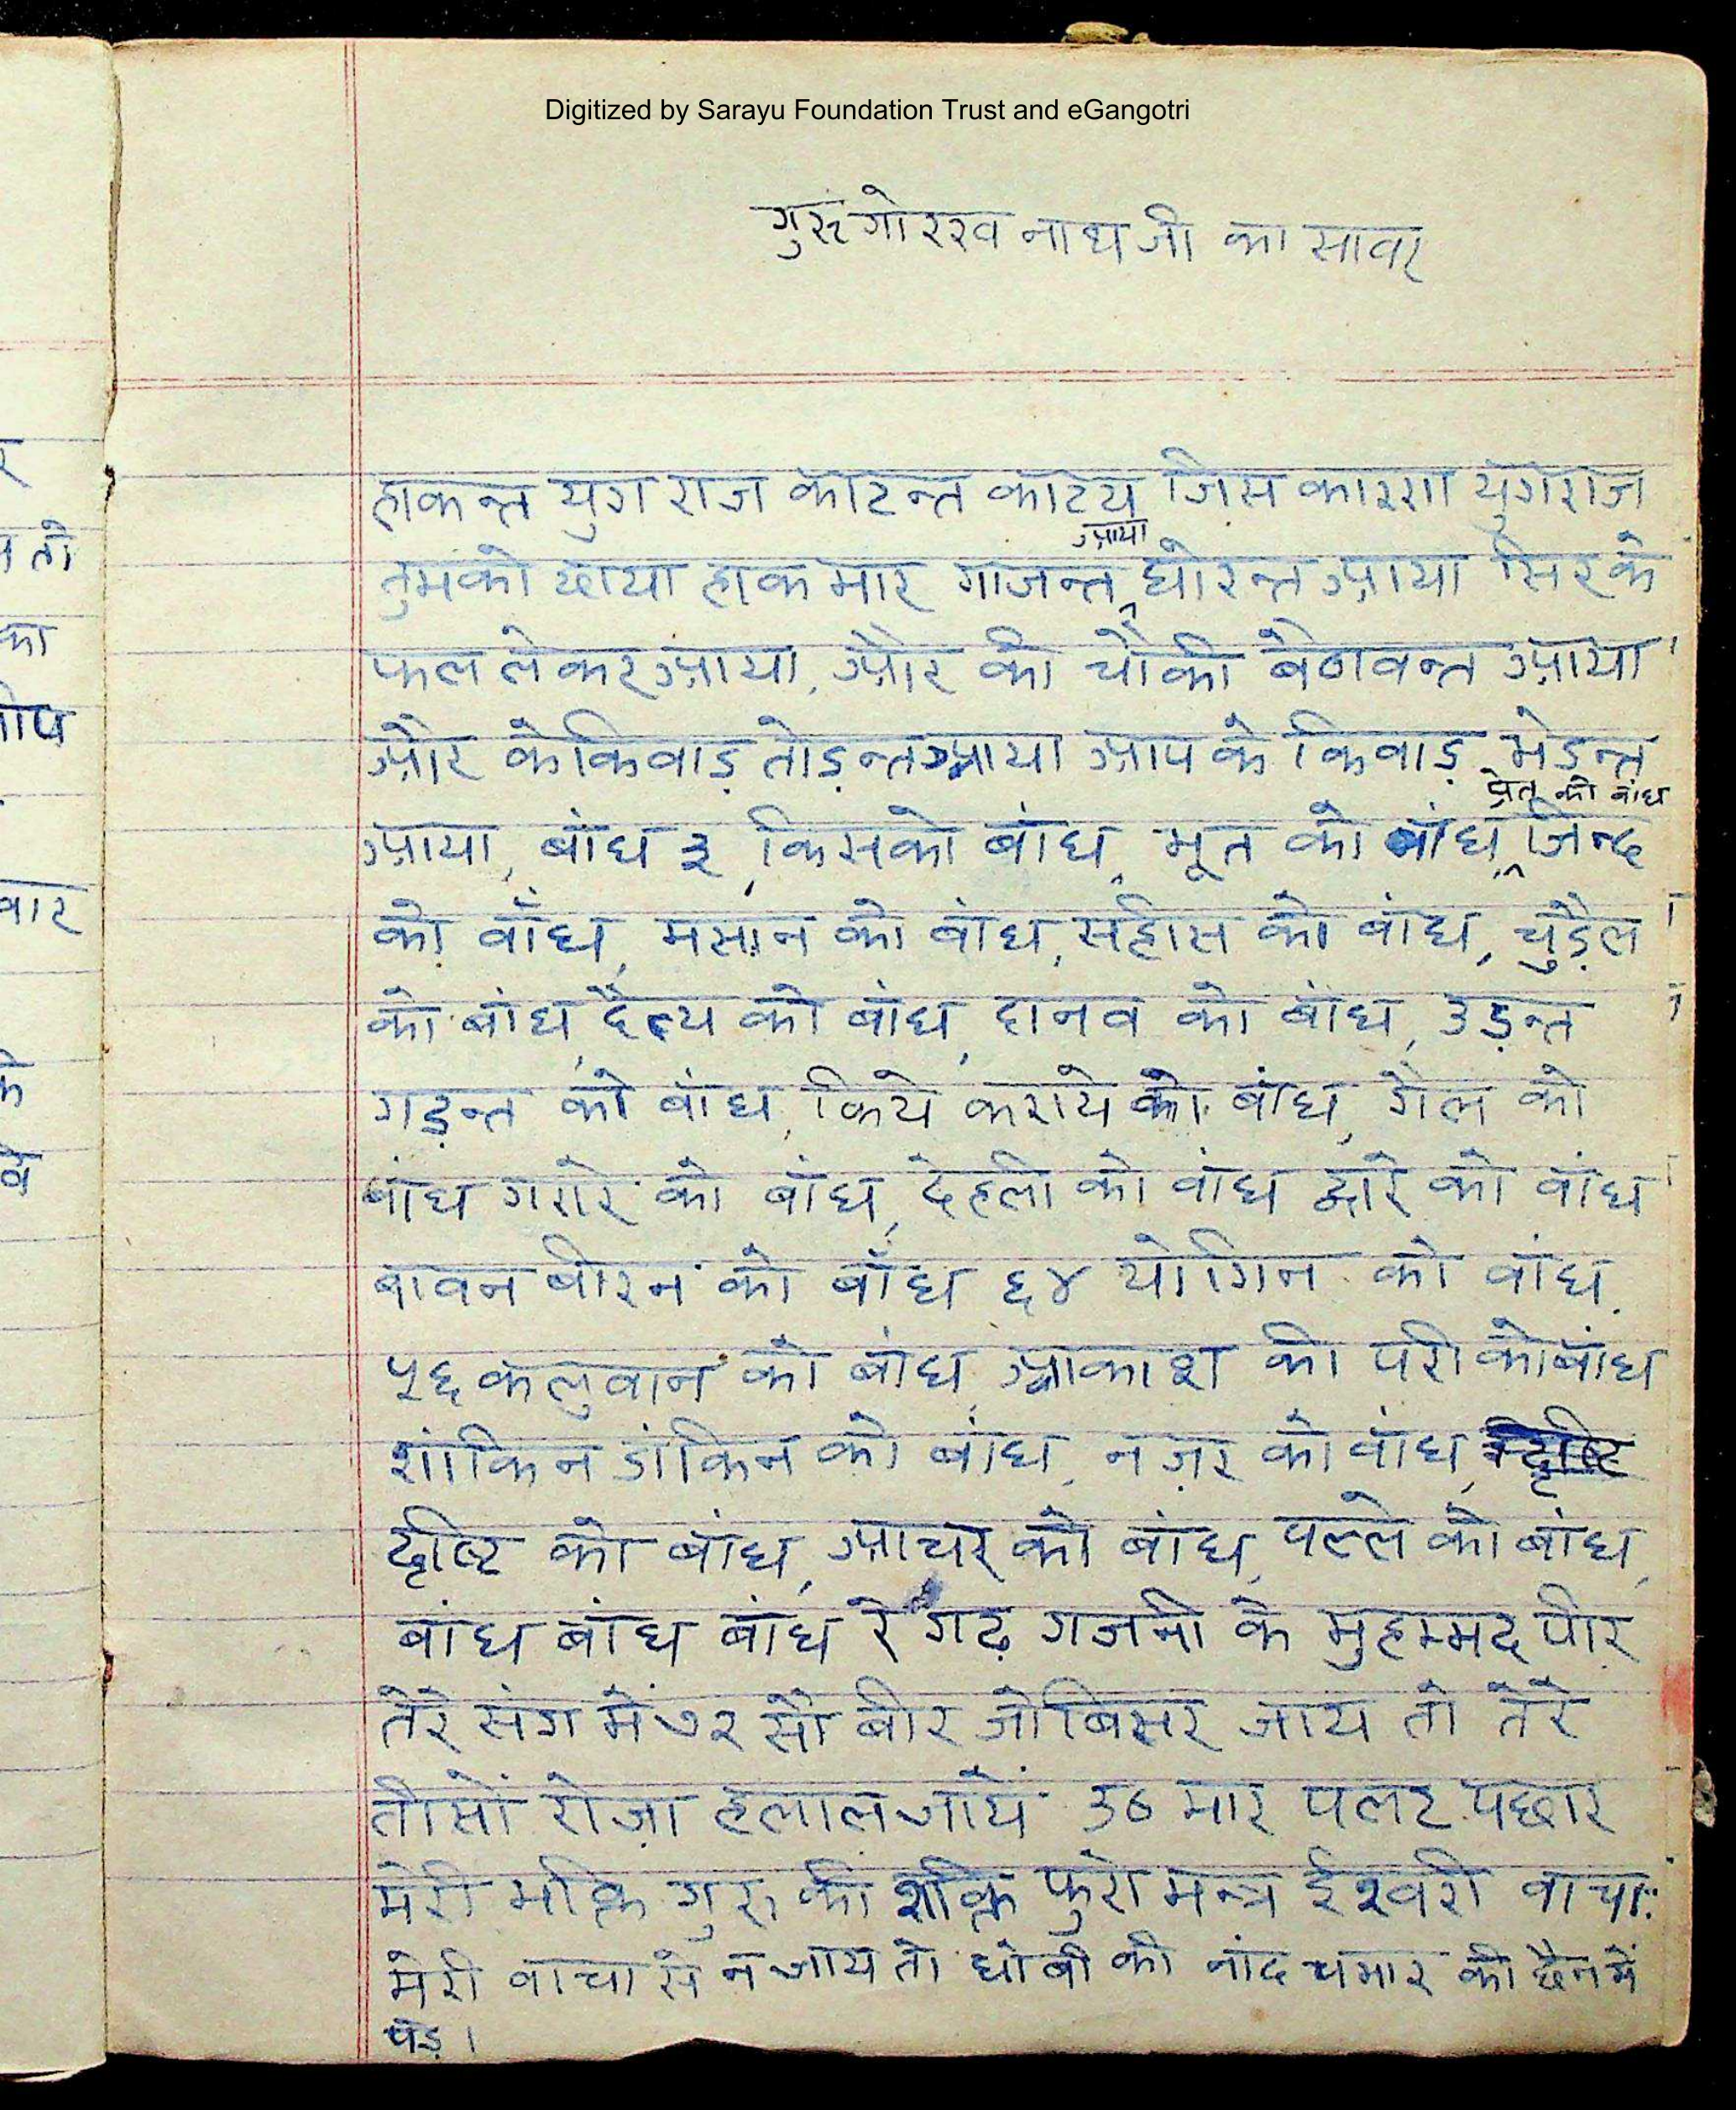 Digitized by Sarayu Foundation Trust and eGangotri
गुरु गोरख नाथ जी का सावर
हाकन्त युग राज काटन्त काटय जिस कारण युगराज
तुमको ध्याया हाक मार गाजन्त आया घोरन्त आया सिर के
फल लेकर आया, और की चौकी बैठावन्त आया
और के किवाड़ तोड़न्त आया आप के किवाड़ भेड़न्त
आया, बांध ३, किसको बांध, भूत को बांध, प्रेत को बांध जिन्द
को बाँध, मसान को बांध, सहास को बांध, चुड़ैल
को बांध, दैत्य को बांध, दानव को बांध, उड़न्त
गड़न्त को बांध, किये कराये को बांध, गैल को
बांध गगरे को बांध, देहली को बांध द्वारे को बांध
बावन बीरन को बाँध ६४ योगिन को बांध.
५६ कलुवान को बांध, आकाश की परी को बांध
शांकिन डांकिन को बांध, नज़र को बांध,
दृष्टि को बांध, आचर को बांध, पल्ले को बांध,
बांध बांध बांध रे गढ़ गजनी के मुहम्मद पीर
तेरे संग में ७२ सौ बीर जो बिसर जाय तो तेरे
तीसों रोज़ा हलाल जायें उठ मार पलट पछार
मेरी भक्ति गुरु की शक्ति फुरो मन्त्र ईश्वरी वाचा:
मेरी वाचा से न जाय तो धोबी की नांद चमार की छैन में
पड़े।